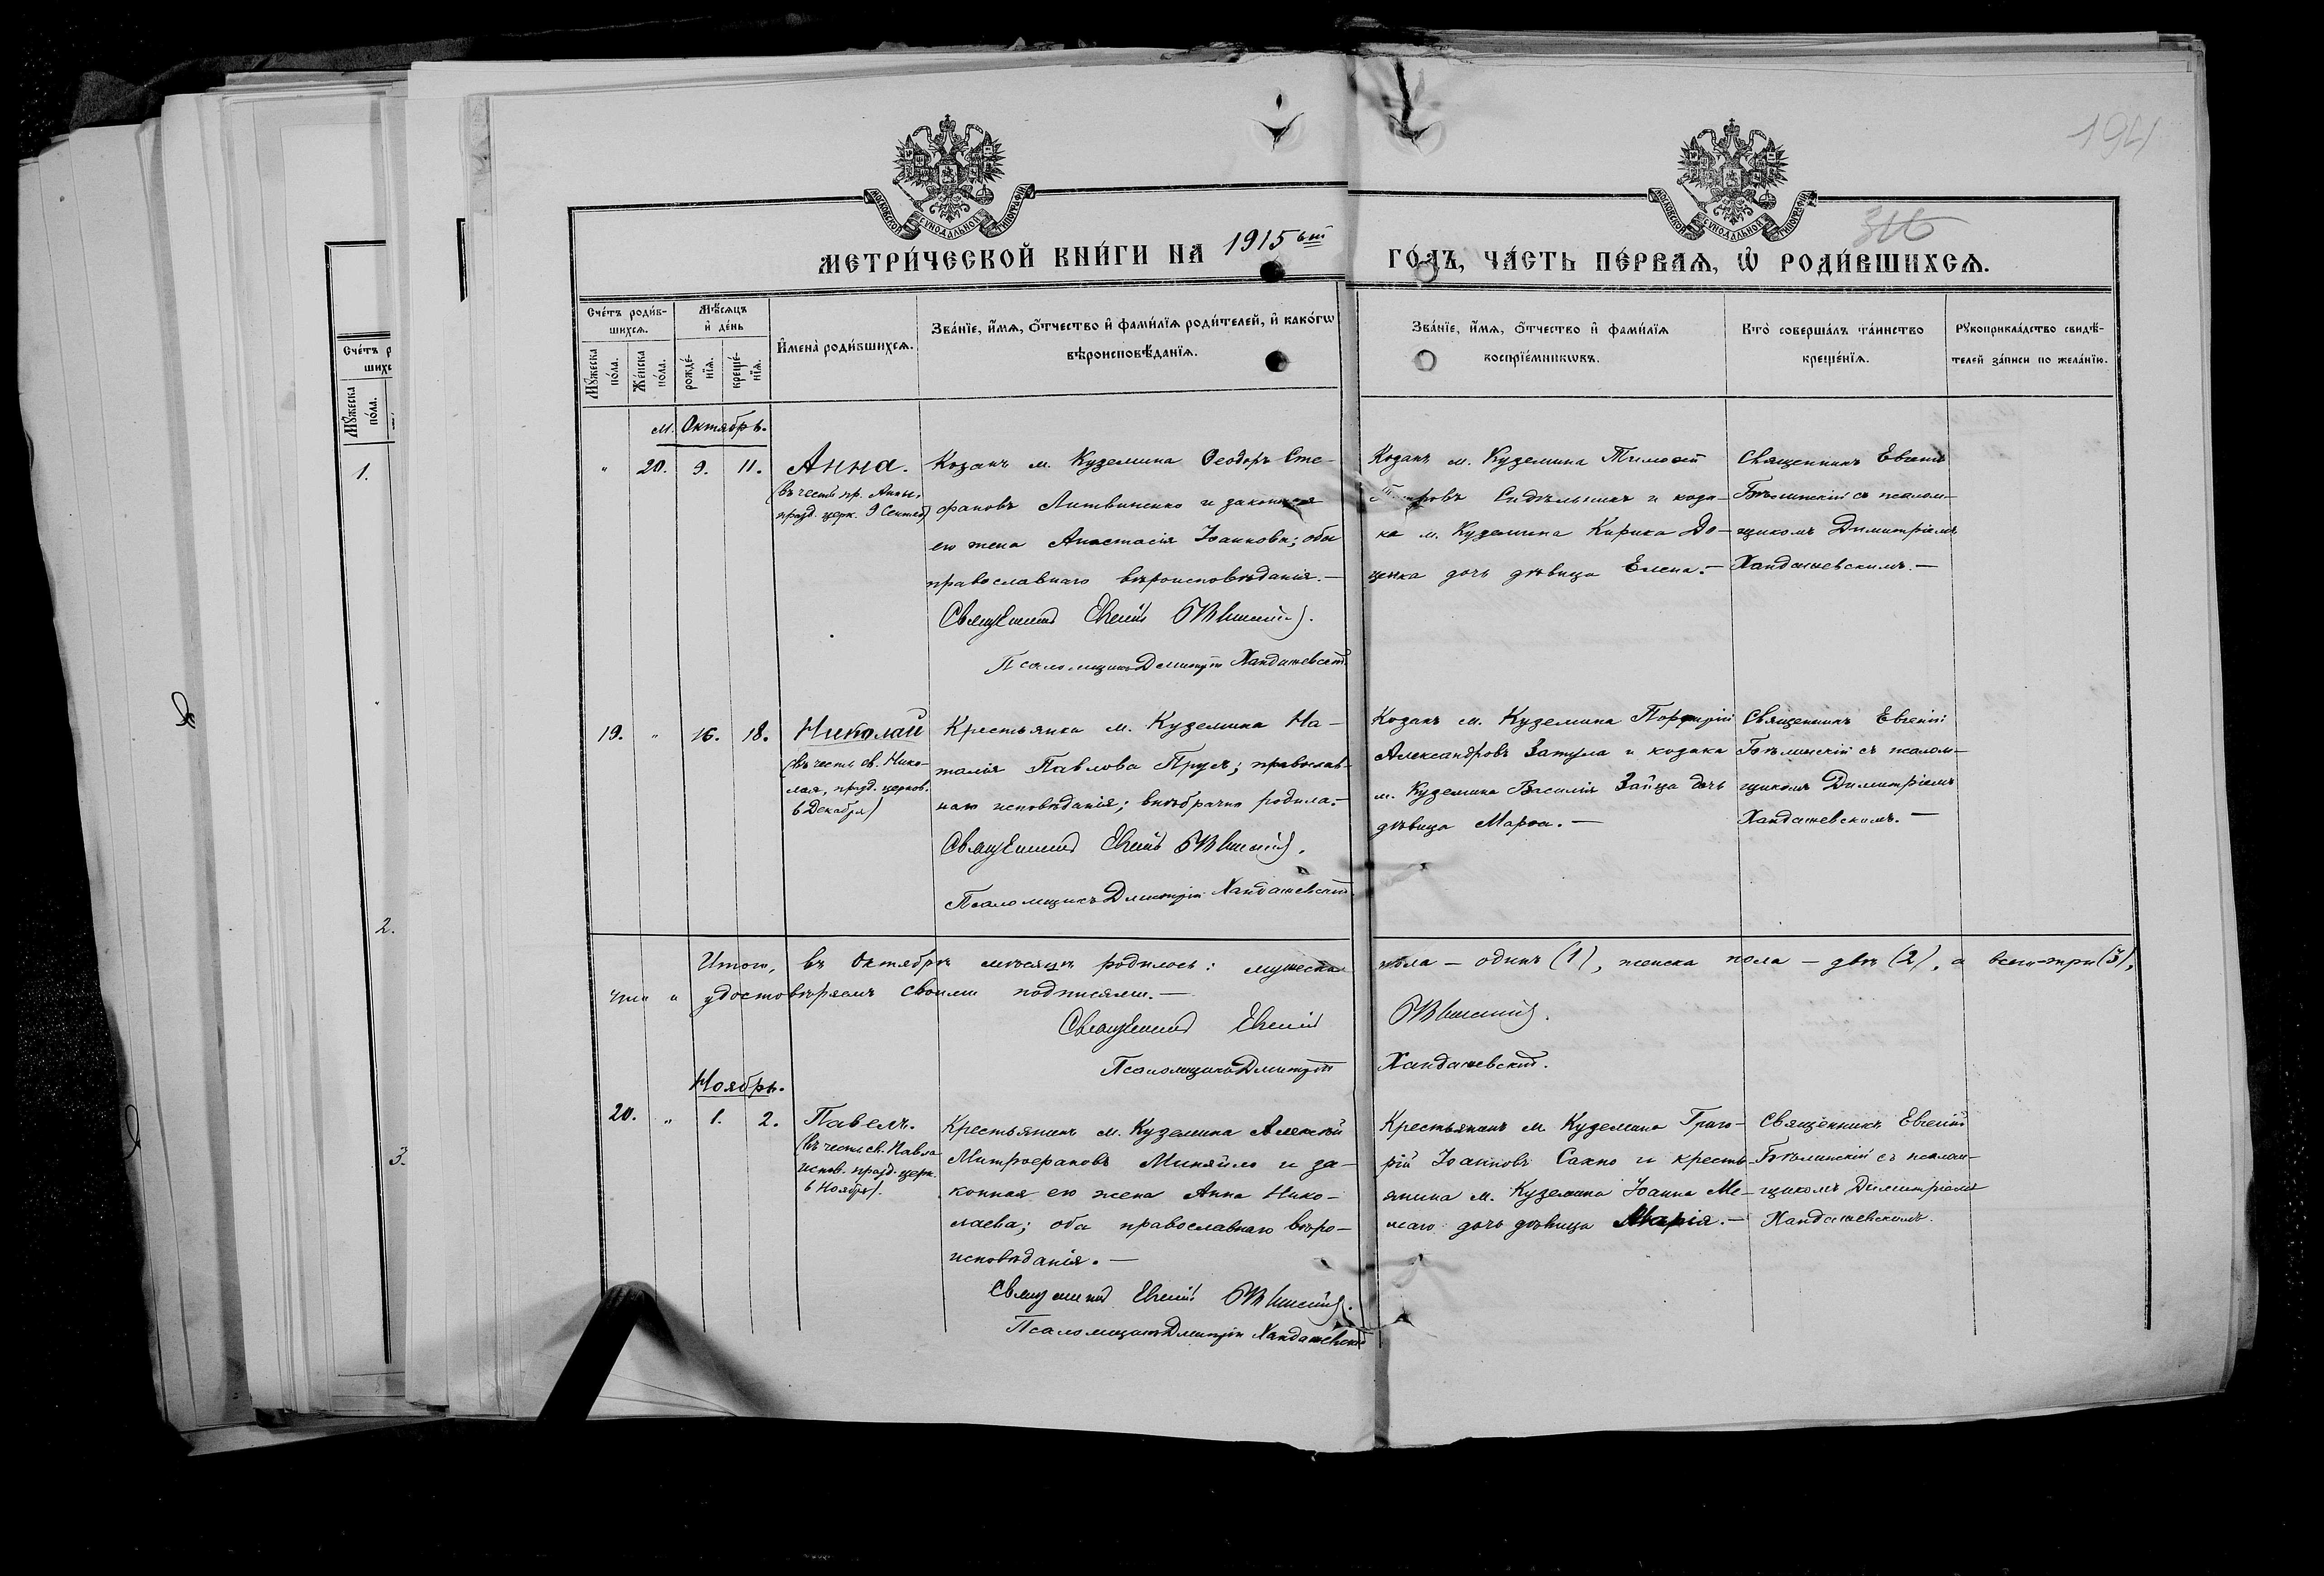 194
316
МОСКОВСКОЙ СУНОДАЛЬНОЙ ТИПОГРАФІИ
МОСКОВСКОЙ СУНОДАЛЬНОЙ ТИПОГРАФІИ
МЕТРИ́ЧЕСКОЙ КНИ́ГИ НА 1915 ый ГО́ДЪ, ЧА́СТЬ ПЕ́РВАѦ, Ѡ҆ РОДИ́ВШИХСѦ.
Сче́тъ роди́в-
шихсѧ.
Мꙋ́жеска
по́ла.
Же́нска
по́ла.
Мѣ́сѧцъ
и҆ де́нь
рожде́-
нїѧ.
креще́-
нїѧ.
И҆мена̀ роди́вшихсѧ.
Зва́нїе, и҆́мѧ, ѻ҆́тчество и҆ фами́лїѧ роди́телей, и҆ како́гѡ
вѣроисповѣ́данїѧ.
Зва́нїе, и҆́мѧ, ѻ҆́тчество и҆ фами́лїѧ
воспрїе́мникѡвъ.
Кто̀ соверша́лъ та́инство
креще́нїѧ.
Рꙋкоприкла́дство свидѣ́-
телей за́писи по жела́нїю.
Сче́тъ р
шихс
Мꙋ́жеска
по́ла.
1.
2.
3.
м. Октябрь.
" 20. 9. 11.
Анна.
(въ честь пр. Анны,
празд. церк. 9 Сентяб)
Козакъ м. Куземина Ѳеодоръ Сте-
фановъ Литвиненко и законная
его жена Анастасія Іоаннова; оба
православнаго вѣроисповѣданія. —
Священникъ Евгеній Бѣлинскій.
Псаломщикъ Димитрій Хандажевскій
Козакъ м. Куземина Тимоѳей
Петровъ Сидѣльникъ и коза-
ка м. Куземина Кирика До-
ценка дочь дѣвица Елена. —
Священникъ Евгеній
Бѣлинскій съ псалом-
щикомъ Димитріемъ
Хандажевскимъ. —
19. " 16. 18.
Николай
(въ честь св. Нико-
лая, празд. церков.
6 Декабря)
Крестьянка м. Куземина На-
талія Павлова Прусъ; православ-
наго исповѣданія; внѣбрачно родила. —
Священникъ Евгеній Бѣлинскій.
Псаломщикъ Димитрій Хандажевскій.
Козакъ м. Куземина Порфирій
Александровъ Затула и козака
м. Куземина Василія Зайца дочь
дѣвица Марѳа. —
Священникъ Евгеній
Бѣлинскій съ псалом-
щикомъ Димитріемъ
Хандажевскимъ. —
Итого, въ Октябрѣ мѣсяцѣ родилось: мужеска пола — одинъ (1), женска пола — двѣ (2), а всего-три (3),
что и удостовѣряемъ своими подписями. —
Священникъ Евгеній Бѣлинскій.
Псаломщикъ Димитрій Хандажевскій.
Ноябрь.
20. " 1. 2.
Павелъ.
(въ честь св. Павла
испов. празд. церк.
6 Ноября).
Крестьянинъ м. Куземина Алексѣй
Митрофановъ Миняйло и за-
конная его жена Анна Нико-
лаева; оба православнаго вѣро-
исповѣданія. —
Священникъ Евгеній Бѣлинскій.
Псаломщикъ Димитрій Хандажевскій
Крестьянинъ м. Куземина Григо-
рій Іоанновъ Сахно и кресть-
янина м. Куземина Іоанна
дочь дѣвица Марія. —
Священникъ Евгеній
Бѣлинскій съ псалом-
щикомъ Димитріемъ
Хандажевскимъ.